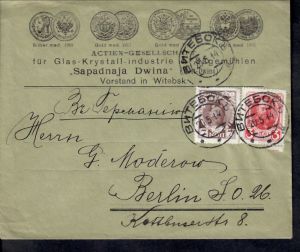 Silber med 1903
Gold med
Gold med
ACTIEN-GESELLSCHAFT
für Glas-Krystall-industrie
Sägemühlen
"Sapadnaja Dwina"
Vorstand in Witebsk
ВИТЕБСК
ВИТЕБСК
ВИТЕБСК
Въ Германію
Herrn
G. Moderow
Berlin S.O. 26.
Kottbuserstr 8.